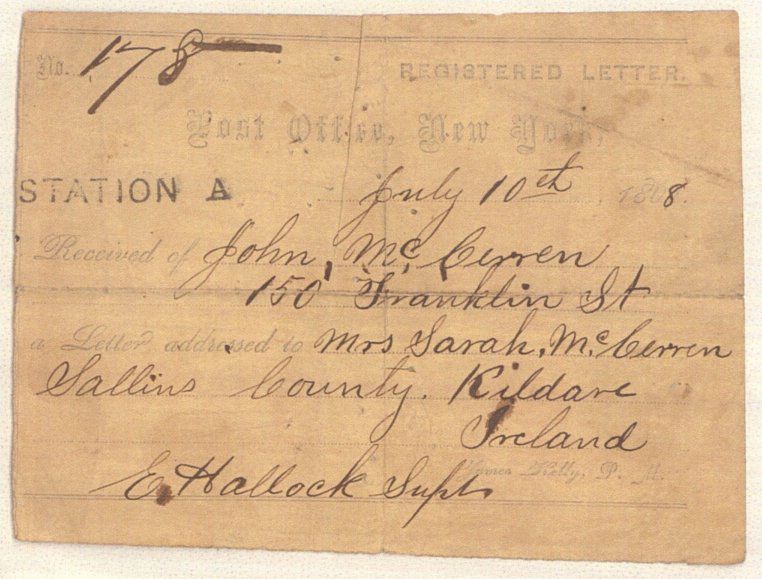 No. 178
REGISTERED LETTER.
Post Office, New York,
STATION A July 10th, 1868.
Received of John, McCerren
150 Franklin St
a Letter addressed to Mrs Sarah, McCerren
Sallins County. Kildare
Ireland
James Kelly, P. M.
E Hallock Supt